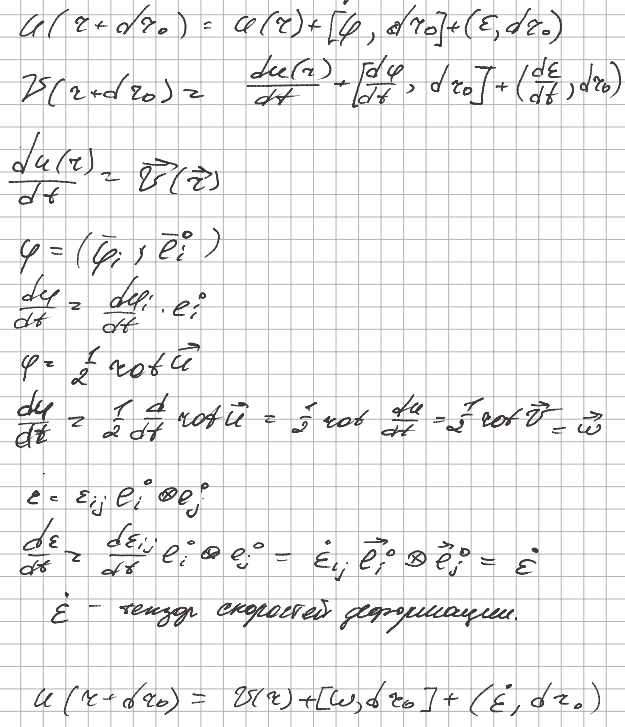 u(r+dr₀) = u(r)+[φ, dr₀]+(ε, dr₀)
v(r+dr₀) = du(r)/dt + [dφ/dt, dr₀] + (dε/dt, dr₀)
du(r)/dt = v⃗(r⃗)
φ = (φ̄ᵢ, ēᵢ⁰)
dφ/dt = dφᵢ/dt · eᵢ⁰
φ = 1/2 rot u⃗
dφ/dt = 1/2 d/dt rot u⃗ = 1/2 rot du/dt = 1/2 rot v⃗ = w⃗
ε = εᵢⱼ eᵢ⁰ ⊗ eⱼ⁰
dε/dt = dεᵢⱼ/dt eᵢ⁰ ⊗ eⱼ⁰ = ε̇ᵢⱼ e⃗ᵢ⁰ ⊗ e⃗ⱼ⁰ = ε̇
ε̇ – тензор скоростей деформации.
u(r+dr₀) = v(r)+[w, dr₀]+(ε̇, dr₀)